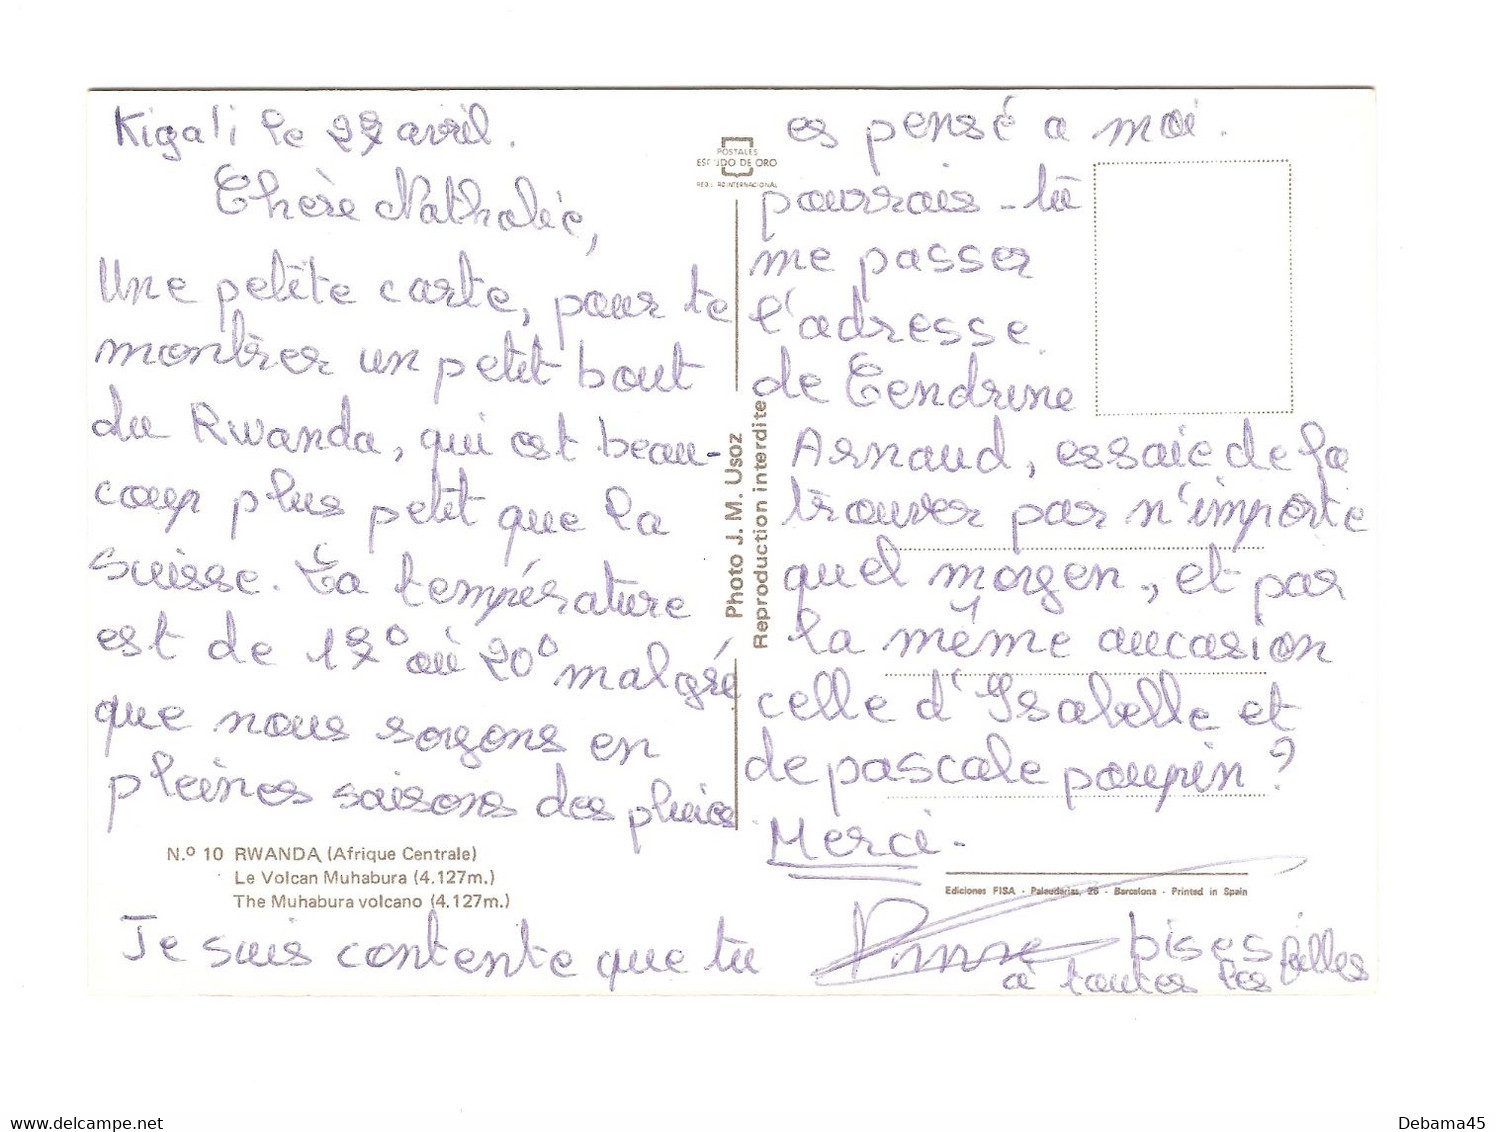 Kigali le 27 avril.
Chère Nathalie,
Une petite carte, pour te
montrer un petit bout
du Rwanda, qui est beau-
coup plus petit que la
suisse. La température
est de 17° où 20° malgré
que nous soyons en
pleines saisons des pluies
N.º 10 RWANDA (Afrique Centrale)
Le Volcan Muhabura (4.127m.)
The Muhabura volcano (4.127m.)
Je suis contente que tu
POSTALES
ESCUDO DE ORO
Photo J. M. Usoz
Reproduction interdite
es pensé a moi.
pourrais-tu
me passer
l'adresse
de
Arnaud, essaie de la
trouver par n'importe
quel moyen, et par
la même aucasion
celle d'Isabelle et
de pascale poupin?
Merci-
Ediciones FISA - Palaudarias, 26 - Barcelona - Printed in Spain
bises
à toutes les filles
Debama45